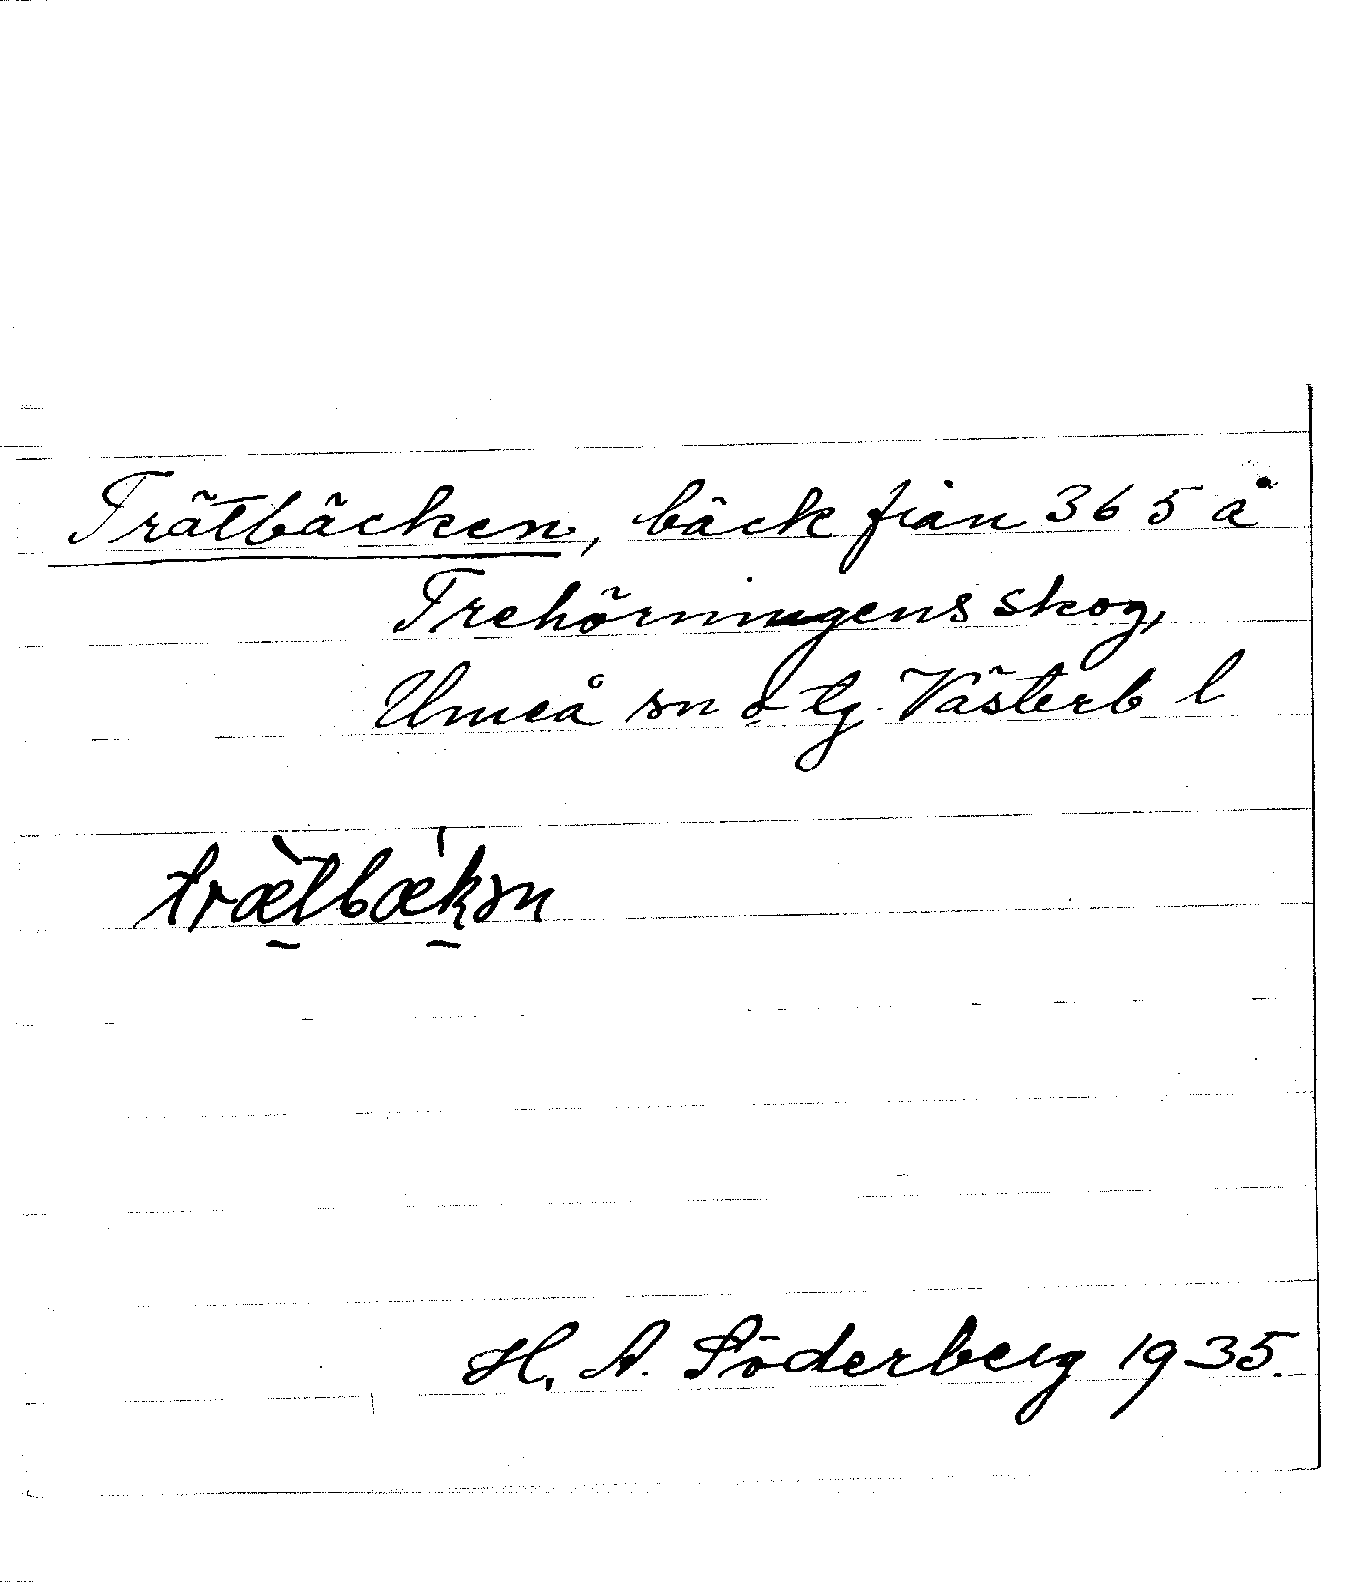 Trätbäcken, bäck från 365 å
Trehörningens skog,
Umeå sn o tg. Västerb l
trætbækən
H. A. Söderberg 1935.